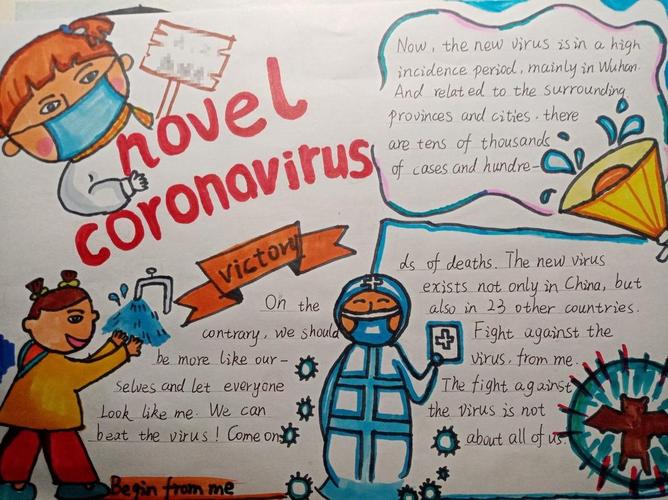 novel
coronavirus
Now, the new virus is in a high
incidence period, mainly in Wuhan.
And related to the surrounding
provinces and cities. there
are tens of thousands
of cases and hundre-
ds of deaths. The new virus
exists not only in China, but
also in 23 other countries.
Fight against the
virus. from me.
The fight against
the virus is not
about all of us
victory
On the
contrary, we should
be more like our-
selves and let everyone
Look like me. We can
beat the virus! Come on
Begin from me